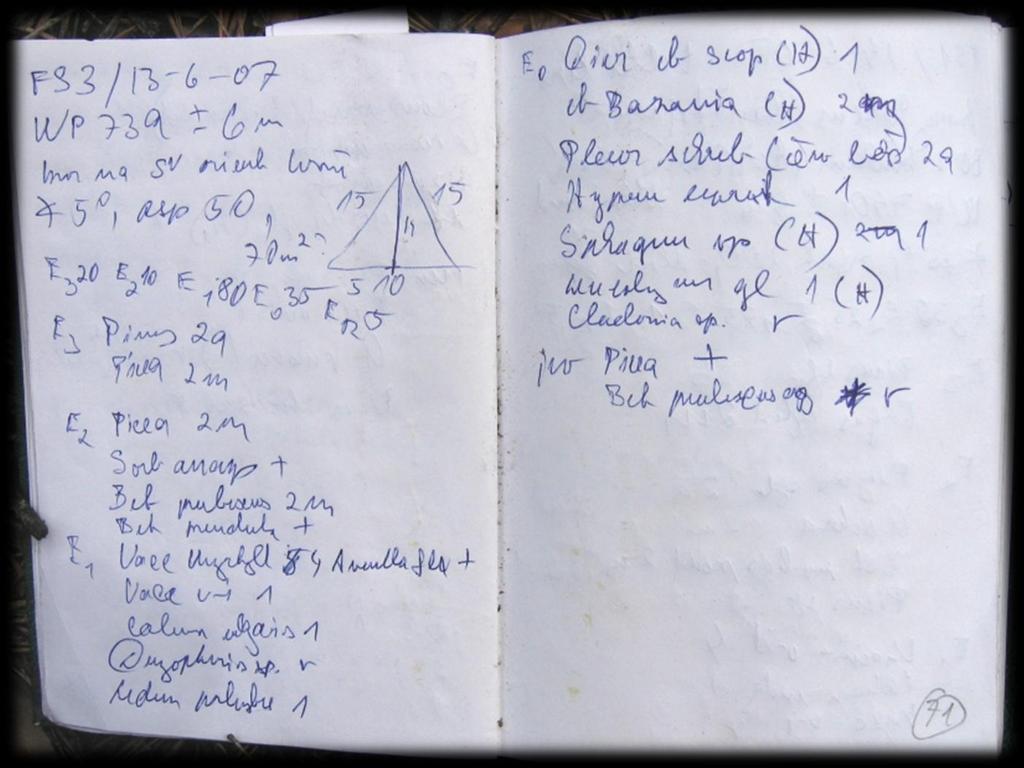 FS3/13-6-07
WP 739 ± 6 m
bor na SV
∢ 5°, asp 50,
15 15
h
70m²
5 10
E₃20 E₂10 E₁80 E₀35
5
E₃ Pinus 2a
Picea 2m
E₂ Picea 2m
Sorb aucup +
Bet pubescens 2m
Bet pendula +
E₁ Vacc myrtyll 4 Avenella flex +
Vacc v-i 1
Calluna vulgaris 1
Dryopteris sp. r
Ledum palustre 1
E₀ Dicr scop (H) 1
Bazzania (H) 2m
Pleur schreb 2a
Hypnum 1
Sphagnum sp (H) 1
Leucobryum gl 1 (H)
Cladonia sp. r
juv Picea +
Bet pubescens r
71